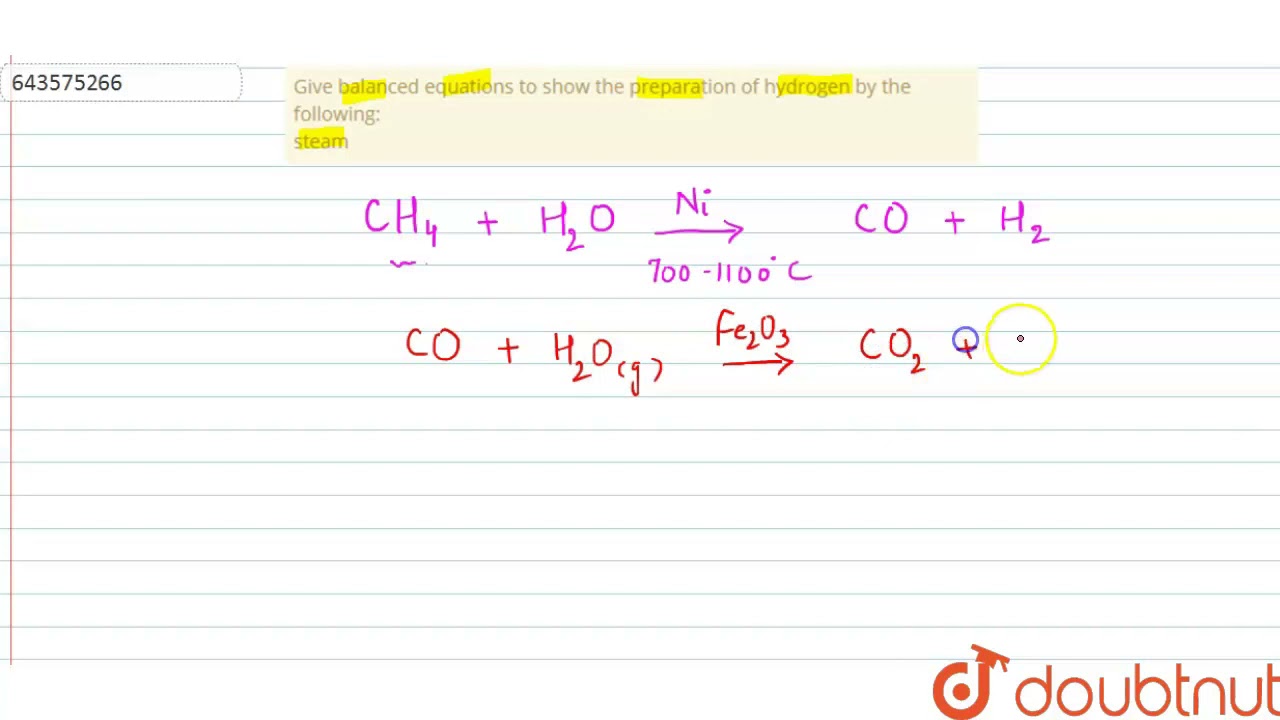 643575266
Give balanced equations to show the preparation of hydrogen by the
following:
steam
CH₄ + H₂O Ni → CO + H₂
700-1100°C
CO + H₂O(g) Fe₂O₃ → CO₂ +
doubtnut